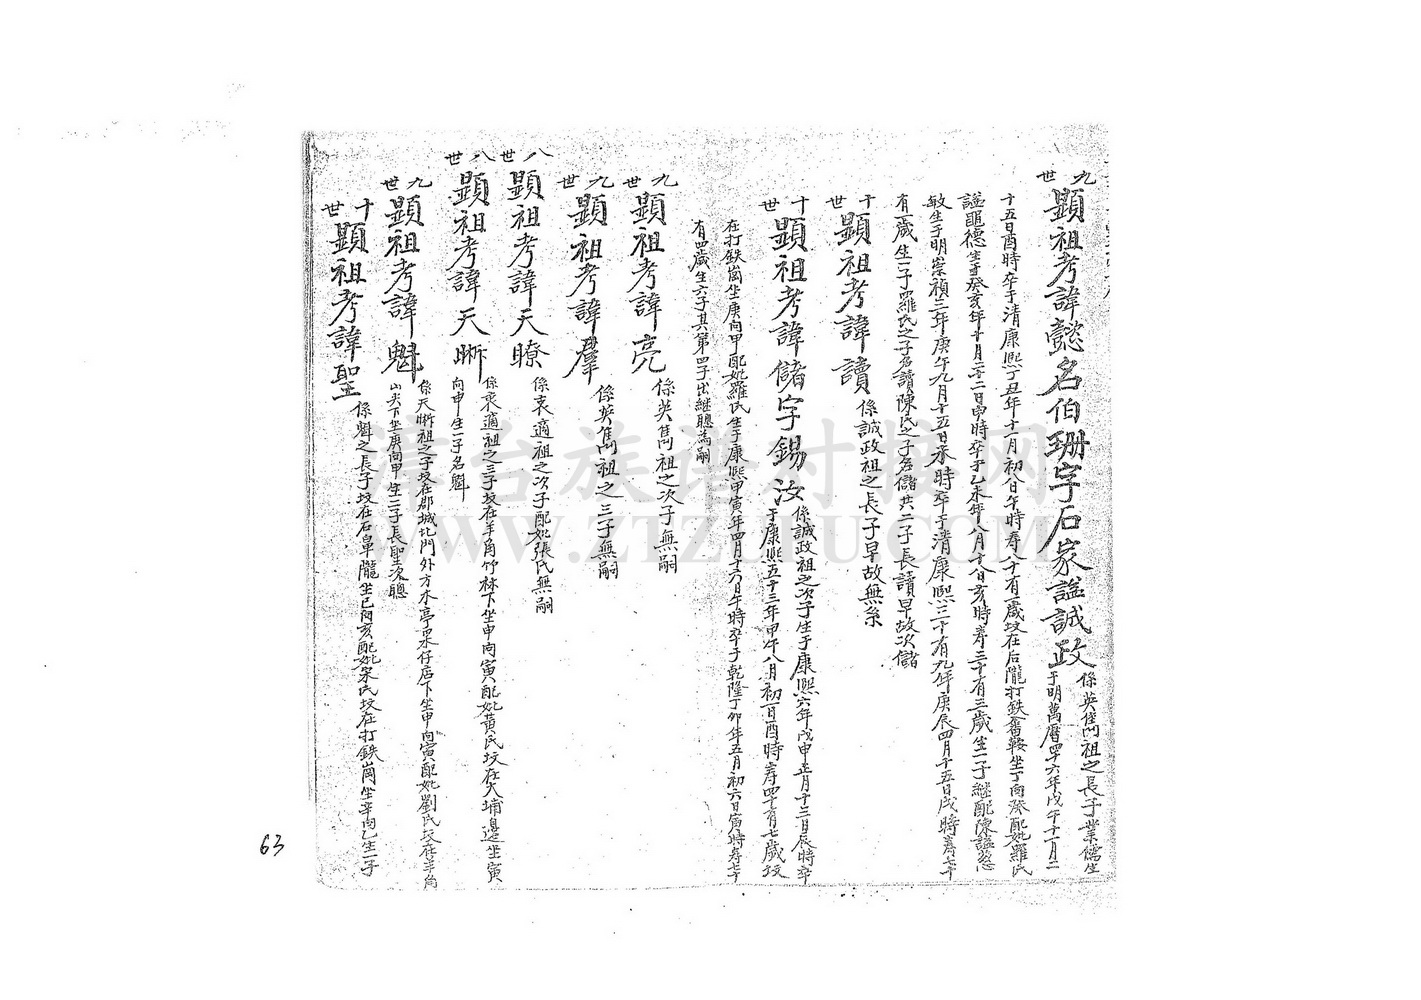 九世
顯祖考諱懿名伯珊字石家謚誠政
係英雋祖之長子業儒生
于明萬曆四十六年戊午十一月二
十五日酉時卒于清康熙丁丑年十一月初八日午時壽八十有一歲坟在后隴打鉄畬鞍坐丁向癸配妣羅氏
謚德生于癸亥年十月二十二日申時卒于乙未年八月十八日亥時壽三十有三歲生一子継配陳謚慈
敏生于明崇禎三年庚午九月十五日亥時卒于清康熙三十有九年庚辰四月十五日戌時壽七十
有一歲生一子羅氏之子名讀陳氏之子名儲共二子長讀早故次儲
十世
顯祖考諱讀
係誠政祖之長子早故無系
十世
顯祖考諱儲字錫汝
係誠政祖之次子生于康熙六年戊申正月十三日辰時卒
于康熙五十三年甲午八月初一日酉時壽四十有七歲坟
在打鉄崗坐庚向甲配妣羅氏生于康熙甲寅年四月十六日午時卒于乾隆丁卯年五月初六日寅時壽七十
有四歲生六子其第四子出継聰為嗣
九世
顯祖考諱亮
係英雋祖之次子無嗣
九世
顯祖考諱羣
係英雋祖之三子無嗣
八世
顯祖考諱天瞭
係衷適祖之次子配妣張氏無嗣
八世
顯祖考諱天晰
係衷適祖之三子坟在羊角竹林下坐申向寅配妣黃氏坟在大埔邊坐寅
向申生一子名魁
九世
顯祖考諱魁
係天晰祖之子坟在郡城北門外方木亭仔店下坐申向寅配妣劉氏坟在羊角
山尖下坐庚向甲生二子長聖次聰
十世
顯祖考諱聖
係魁之長子坟在石皐隴坐巳向亥配妣宋氏坟在打鉄崗坐辛向乙生一子
漳台族譜对接网
WWW.ZTZUPU.COM
63